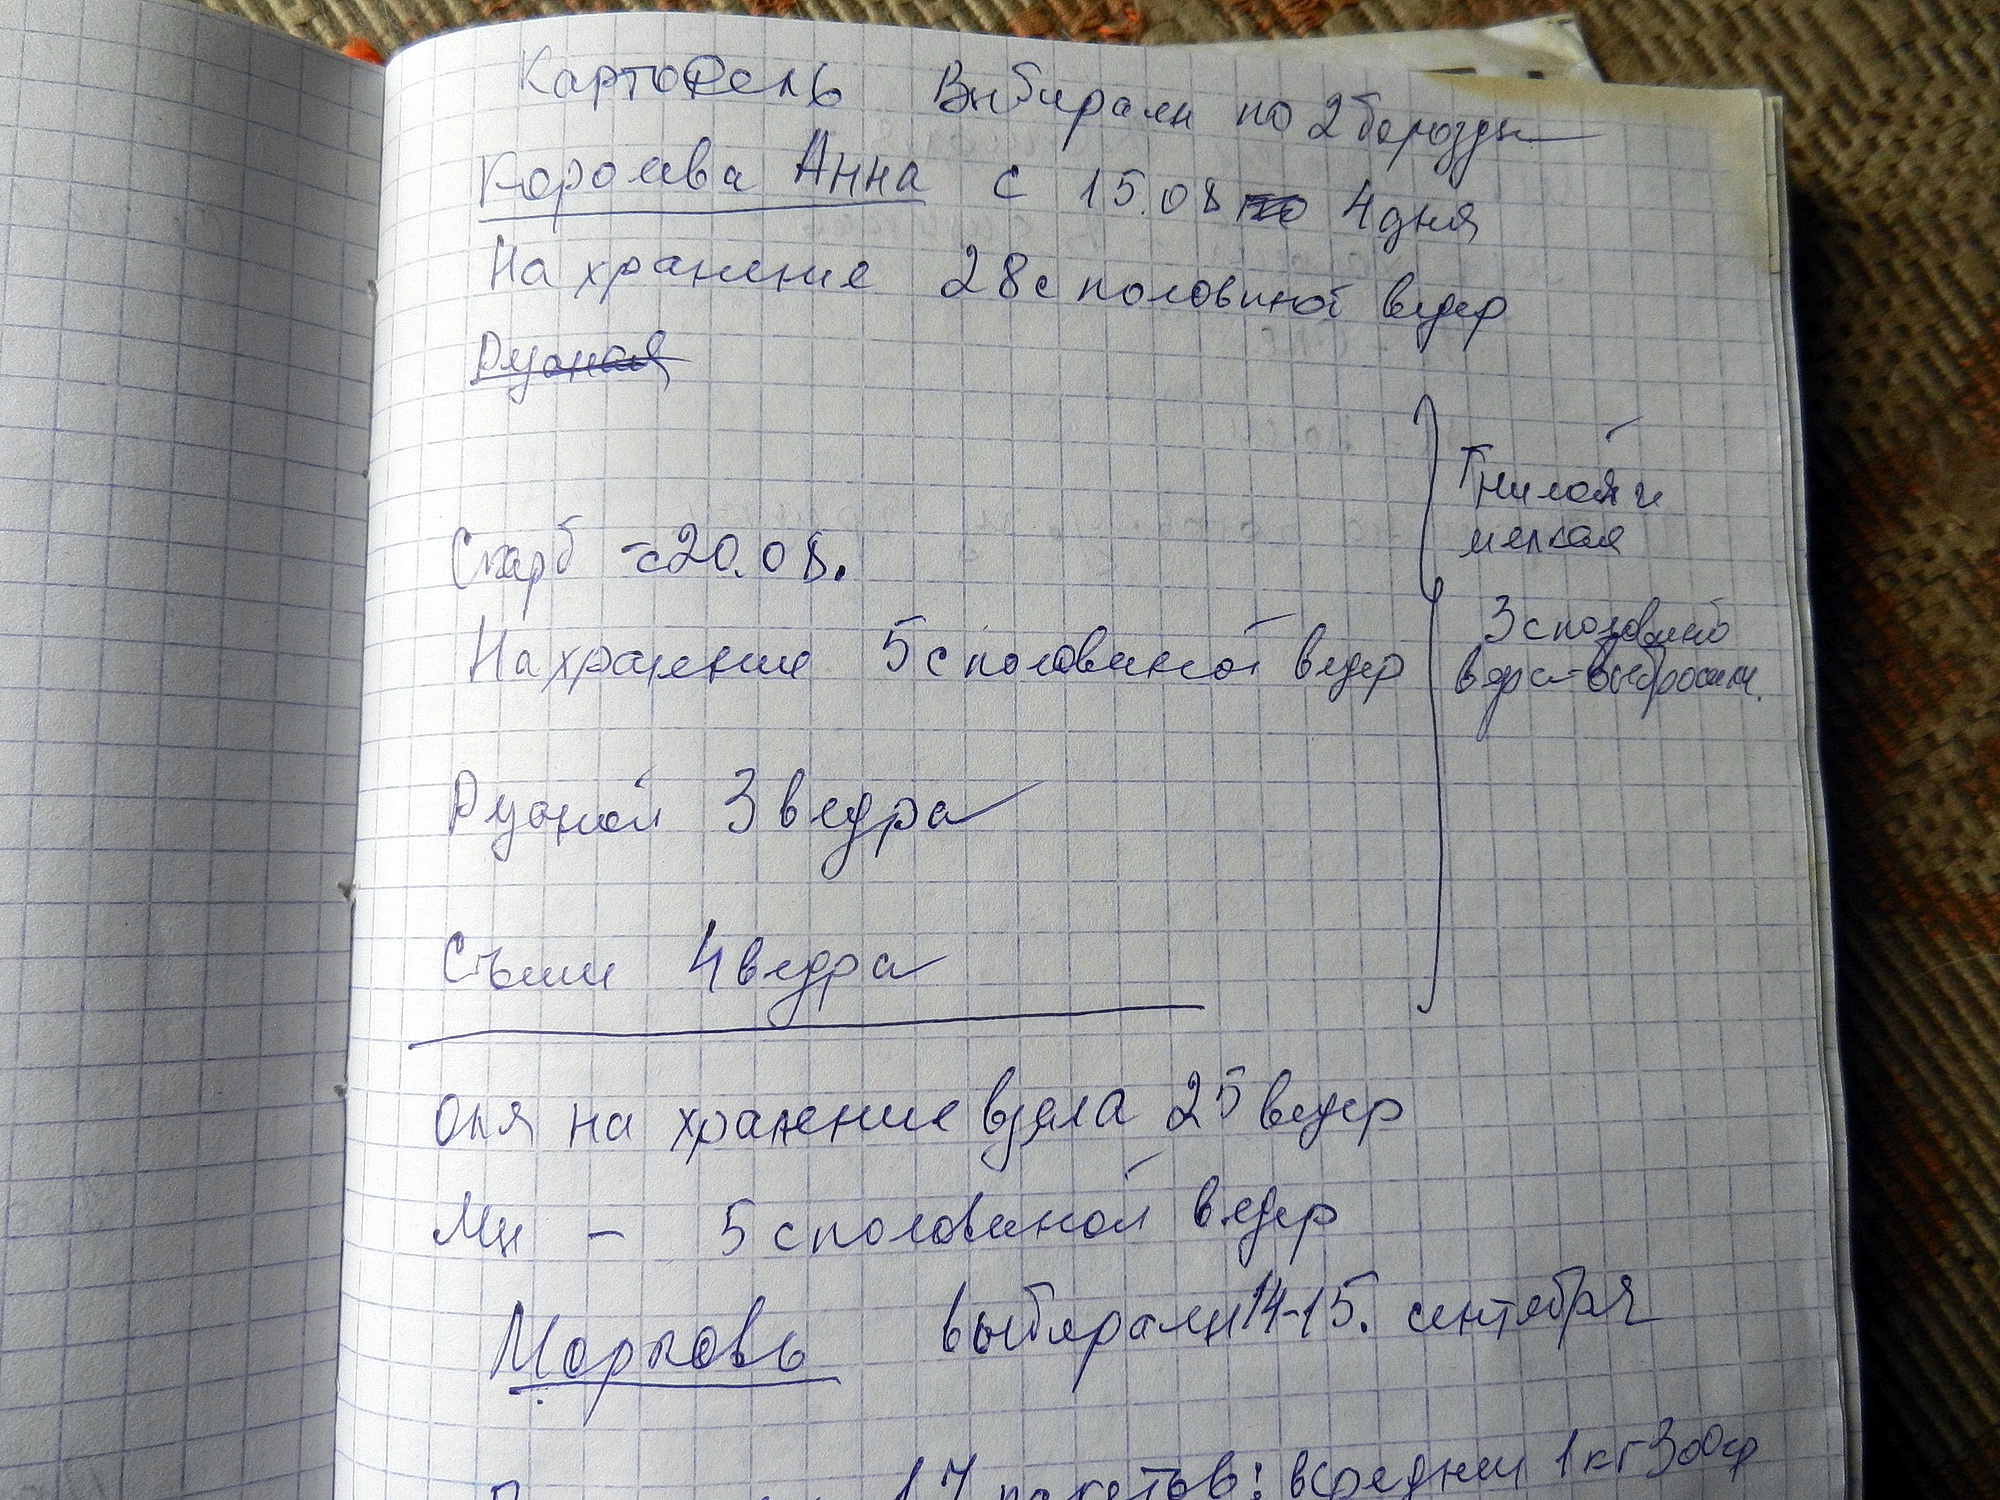 Картофель Выбирали по 2 борозды
Королева Анна с 15.08 по 4 дня
На хранение 28 с половиной ведер
Скарб - с 20.08.
На хранение 5 с половиной ведер
Гнилой и
мелкая
3 с половиной
ведра - выбросили.
3 ведра
Съели 4 ведра
Оля на хранение взяла 25 ведер
Мы - 5 с половиной ведер
Морковь выбирали 14-15. сентября
17 пакетов: в среднем 1 кг 300 гр